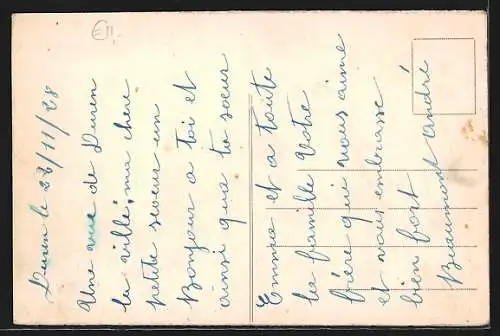 Duren le 28/11/28
Une vue de Duren
la ville, ma chere
petite soeur un
Bonjour a toi et
ainsi qua ta soeur
Emma et a toute
la famille Votre
frère qui vous aime
et vous embrasse
bien fort
Beaumont André